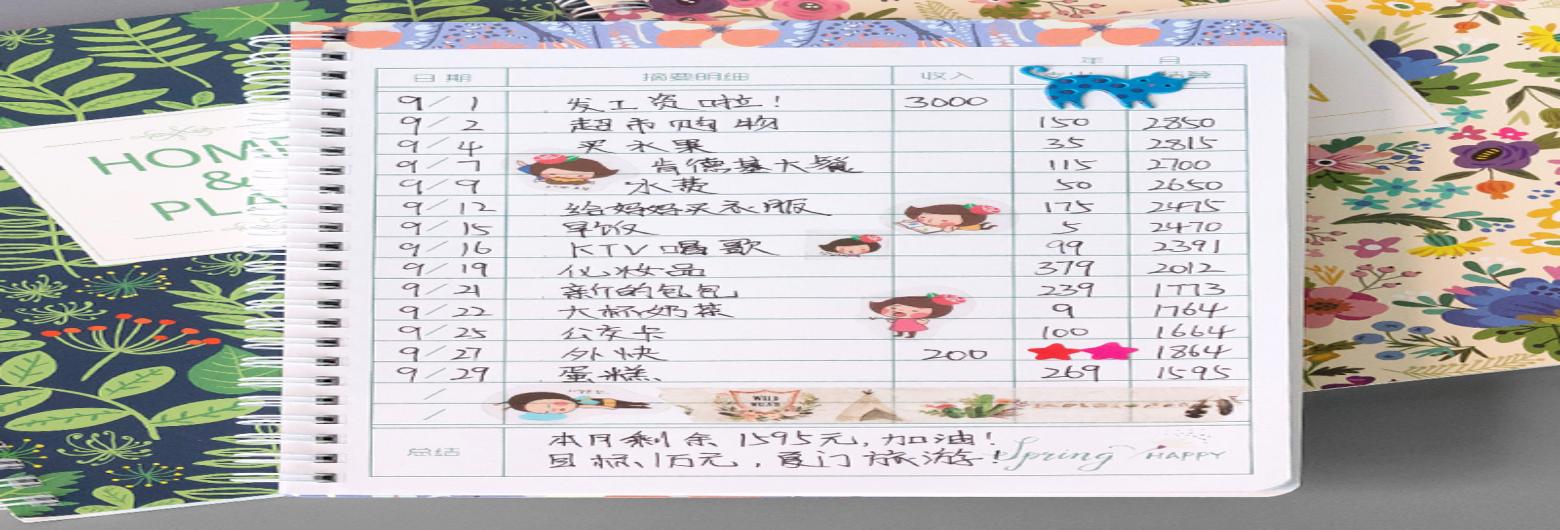 HOME
&
PLA
年 月
日期 摘要明细 收入
9/1 发工资啦! 3000
9/2 超市购物 150 2850
9/4 买水果 35 2815
9/7 肯德基大餐 115 2700
9/9 水费 50 2650
9/12 给妈妈买衣服 175 2475
9/15 早饭 5 2470
9/16 KTV唱歌 99 2391
9/19 化妆品 379 2012
9/21 新的包包 239 1773
9/22 大杯奶茶 9 1764
9/25 公交卡 100 1664
9/27 外快 200 1864
9/29 蛋糕 269 1595
/
/
WILD
总结 本月剩余1595元,加油!
目标1万元,厦门旅游! Spring HAPPY